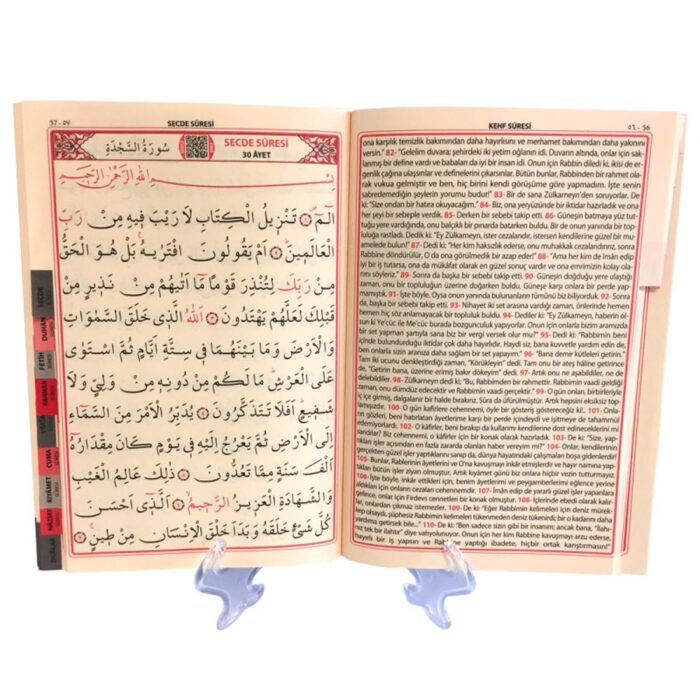 57 - ٥٧
SECDE SÛRESİ
سُورَةُ السَّجْدَةِ
SECDE SÛRESİ
30 ÂYET
بِسْمِ اللهِ الرَّحْمٰنِ الرَّحِيمِ
الٓمٓ ۚ ﴿١﴾ تَنْزِيلُ الْكِتَابِ لَا رَيْبَ فِيهِ مِنْ رَبِّ
الْعَالَمِينَ ۜ ﴿٢﴾ اَمْ يَقُولُونَ افْتَرٰيهُ ۚ بَلْ هُوَ الْحَقُّ
مِنْ رَبِّكَ لِتُنْذِرَ قَوْمًا مَٓا اَتٰيهُمْ مِنْ نَذِيرٍ مِنْ
قَبْلِكَ لَعَلَّهُمْ يَهْتَدُونَ ﴿٣﴾ اَللهُ الَّذِي خَلَقَ السَّمٰوَاتِ
وَالْاَرْضَ وَمَا بَيْنَهُمَا فِي سِتَّةِ اَيَّامٍ ثُمَّ اسْتَوٰى
عَلَى الْعَرْشِ ۜ مَا لَكُمْ مِنْ دُونِهِ مِنْ وَلِيٍّ وَلَا
شَفِيعٍ ۜ اَفَلَا تَتَذَكَّرُونَ ﴿٤﴾ يُدَبِّرُ الْاَمْرَ مِنَ السَّمَٓاءِ
اِلَى الْاَرْضِ ثُمَّ يَعْرُجُ اِلَيْهِ فِي يَوْمٍ كَانَ مِقْدَارُهُٓ
اَلْفَ سَنَةٍ مِمَّا تَعُدُّونَ ﴿٥﴾ ذٰلِكَ عَالِمُ الْغَيْبِ
وَالشَّهَادَةِ الْعَزِيزُ الرَّحِيمُ ۙ ﴿٦﴾ اَلَّذِٓي اَحْسَنَ
كُلَّ شَيْءٍ خَلَقَهُ وَبَدَاَ خَلْقَ الْاِنْسَانِ مِنْ طِينٍ ۚ ﴿٧﴾
SECDE
DUHAN
FETİH
RAHMAN
CUMA
KIYÂMET
DUÂLAR
KEHF SÛRESİ
٥٦ - 56
ona karşılık temizlik bakımından daha hayırlısını ve merhamet bakımından daha yakınını
versin." 82- "Gelelim duvara; şehirdeki iki yetim oğlanın idi. Duvarın altında, onlar için sak-
lanmış bir define vardı ve babaları da iyi bir insan idi. Onun için Rabbin diledi ki, ikisi de er-
ginlik çağına ulaşsınlar ve definelerini çıkarsınlar. Bütün bunlar, Rabbinden bir rahmet ola-
rak vukua gelmiştir ve ben, hiç birini kendi görüşüme göre yapmadım. İşte senin
sabredemediğin şeylerin yorumu budur!" 83- Bir de sana Zülkarneyn'den soruyorlar. De
ki: "Size ondan bir hatıra okuyacağım." 84- Biz, ona yeryüzünde bir iktidar hazırladık ve ona
her şeyi bir sebeple verdik. 85- Derken bir sebebi takip etti. 86- Güneşin batmaya yüz tut-
tuğu yere vardığında, onu balçıklı bir pınarda batarken buldu. Bir de onun yanında bir top-
luluğa rastladı. Dedik ki: "Ey Zülkarneyn, ister cezalandır, istersen kendilerine güzel bir mu-
amelede bulun!" 87- Dedi ki: "Her kim haksızlık ederse, onu muhakkak cezalandırırız, sonra
Rabbine döndürülür, O da ona görülmedik bir azap eder!" 88- "Ama her kim de îmân edip
iyi bir iş tutarsa, ona da mükâfat olarak en güzel sonuç vardır ve ona emrimizin kolay ola-
nını söyleriz." 89- Sonra da başka bir sebebi takip etti. 90- Güneşin doğduğu yere ulaştığı
zaman, onu bir topluluğun üzerine doğarken buldu. Güneşe karşı onlara bir perde yap-
mamıştık. 91- İşte böyle. Oysa onun yanında bulunanların tümünü biz biliyorduk. 92- Sonra
da, başka bir sebebi takip etti. 93- Nihayet iki set arasına vardığı zaman, önlerinde hemen
hemen hiç söz anlamayacak bir topluluk buldu. 94- Dediler ki: "Ey Zülkarneyn, haberin ol-
sun ki Ye'cüc ile Me'cüc burada bozgunculuk yapıyorlar. Onun için onlarla bizim aramızda
bir set yapman şartıyla sana biz bir vergi versek olur mu?" 95- Dedi ki: "Rabbimin beni
içinde bulundurduğu iktidar çok daha hayırlıdır. Haydi siz, bana kuvvetle yardım edin de,
ben onlarla sizin aranıza daha sağlam bir set yapayım." 96- "Bana demir kütleleri getirin."
Tam iki ucunu denkleştirdiği zaman, "Körükleyin" dedi. Tam onu bir ateş hâline getirince
de, "Getirin bana, üzerine erimiş bakır dökeyim" dedi. 97- Artık onu ne aşabildiler, ne de
delebildiler. 98- Zülkarneyn dedi ki: "Bu, Rabbimden bir rahmettir. Rabbimin vaadi geldiği
zaman, onu dümdüz edecektir ve Rabbimin vaadi gerçektir." 99- O gün onları, birbirleriyle
iç içe girmiş, dalgalanır bir halde bırakırız. Sûra da üfürülmüştür. Artık hepsini eksiksiz top-
lamışızdır. 100- O gün kâfirlere cehennemi, öyle bir gösteriş göstereceğiz ki!. 101- Onla-
rın gözleri, beni hatırlatan âyetlerime karşı bir perde içindeydi ve işitmeye de tahammül
edemiyorlardı. 102- O kâfirler, beni bırakıp da kullarımı kendilerine dost edineceklerini mi
sandılar? Biz cehennemi, o kâfirler için bir konak olarak hazırladık. 103- De ki: "Size, yap-
tıkları işler açısından en fazla zararda olanları haber verelim mi? 104- Onlar, kendilerinin
gerçekten güzel işler yaptıklarını sanıp da, dünya hayatındaki çalışmaları boşa gidenlerdir!
105- Bunlar, Rablerinin âyetlerini ve O'na kavuşmayı inkâr etmişlerdir ve hayır namına yap-
tıkları bütün işler ziyan olmuştur. Artık kıyâmet günü biz onlara hiçbir vezin tutturmayız.
106- İşte böyle, inkâr ettikleri için, benim âyetlerimi ve peygamberlerimi eğlence yerine
aldıkları için onların cezaları cehennemdir. 107- Îmân edip de yararlı güzel işler yapanlara
gelince, onlar için Firdevs cennetleri bir konak olmuştur. 108- İçlerinde ebedi olarak kalır-
lar, onlardan çıkmaz istemezler. 109- De ki: "Eğer Rabbimin kelimeleri için deniz mürek-
kep olsaydı, şüphesiz Rabbimin kelimeleri tükenmeden deniz tükenirdi; bir o kadarını daha
yardıma getirsek bile..." 110- De ki: "Ben sadece sizin gibi bir insanım; ancak bana, "İlahı-
nız tek bir ilahtır" diye vahyolunuyor. Onun için her kim Rabbine kavuşmayı arzu ederse,
hayırlı bir iş yapsın ve Rabbine yaptığı ibadete, hiçbir ortak karıştırmasın!"